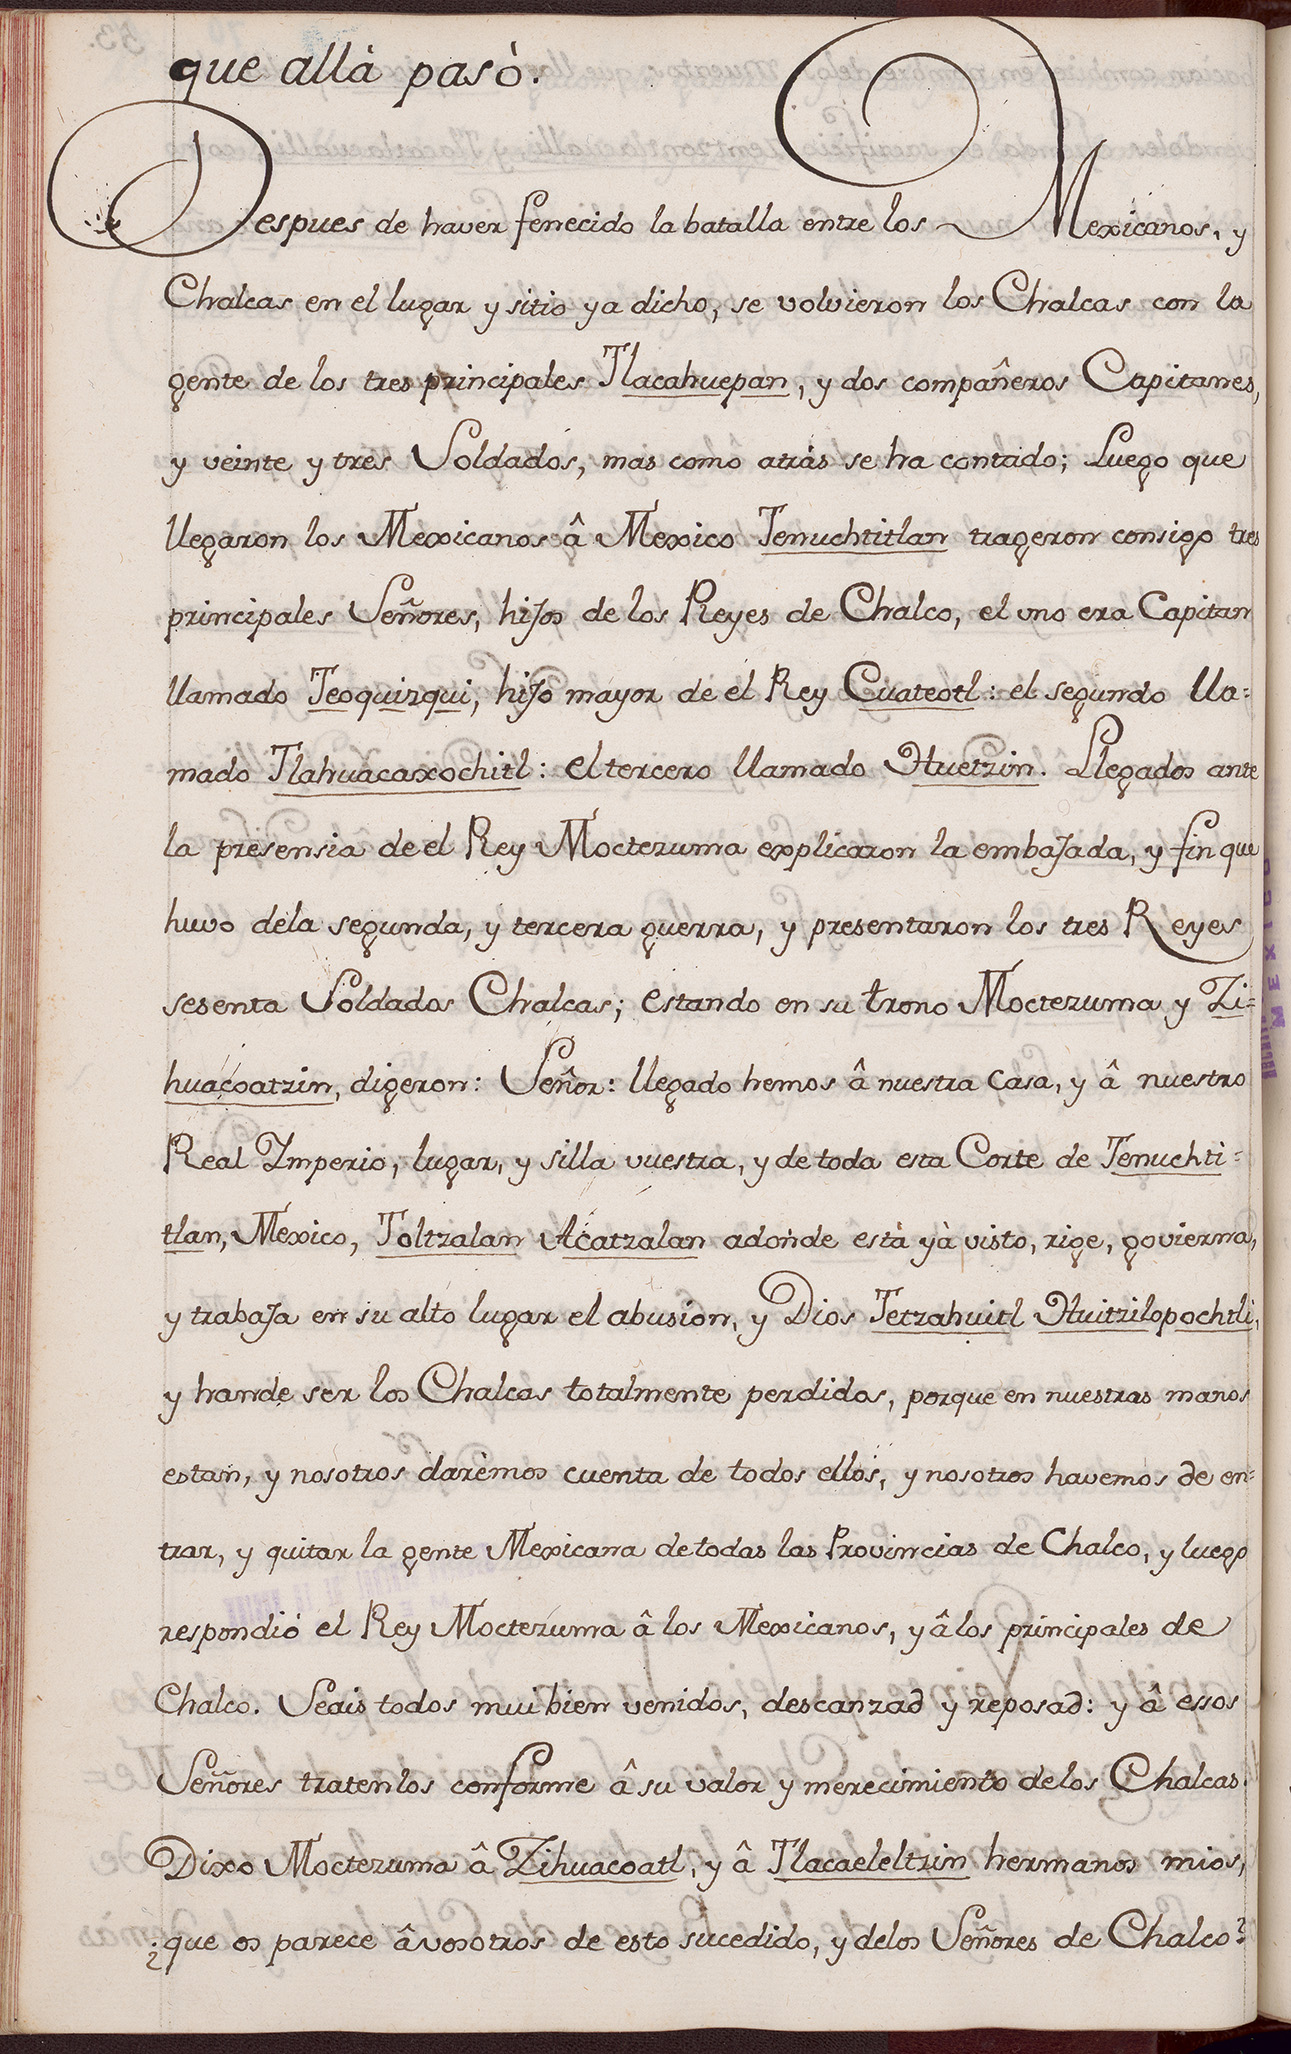 que allà pasò.
Despues de haver fenecido la batalla entre los Mexicanos, y
Chalcas en el lugar y sitio ya dicho, se volvieron los Chalcas con la
gente de los tres principales Tlacahuepan, y dos compañeros Capitanes,
y veinte y tres Soldados, mas como atràs se ha contado; Luego que
llegaron los Mexicanos â Mexico Tenuchtitlan trageron consigo tres
principales Señores, hijos de los Reyes de Chalco, el uno era Capitan
llamado Teoquizqui, hijo mayor de el Rey Cuateotl: el segundo lla=
mado Tlahuacaxochitl: el tercero llamado Huetzin. Llegados ante
la presensia de el Rey Moctezuma explicaron la embajada, y fin que
huvo dela segunda, y tercera guerra, y presentaron los tres Reyes
sesenta Soldados Chalcas; estando en su trono Moctezuma y Zi=
huacoatzin, digeron: Señor: llegado hemos â nuestra Casa, y â nuestro
Real Imperio, lugar, y silla vuestra, y de toda esta Corte de Tenuchti=
tlan, Mexico, Toltzalan Acatzalan adonde està yà visto, rige, govierna,
y trabaja en su alto lugar el abusion, y Dios Tetzahuitl Huitzilopochtli,
y hande ser los Chalcas totalmente perdidos, porque en nuestras manos
estan, y nosotros darèmos cuenta de todos ellos, y nosotros havemos de en=
trar, y quitar la gente Mexicana de todas las Provincias de Chalco, y luego
respondió el Rey Moctezuma â los Mexicanos, y â los principales de
Chalco. Seais todos mui bien venidos, descanzad y reposad: y â essos
Señores tratenlos conforme â su valor y merecimiento delos Chalcas.
Dixo Moctezuma â Zihuacoatl, y â Tlacaeleltzin hermanos mios,
¿que os parece â vosotros de esto sucedido, y delos Señores de Chalco?